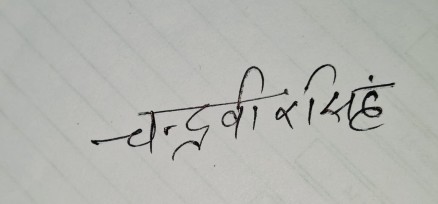 चन्द्रवीर सिंह